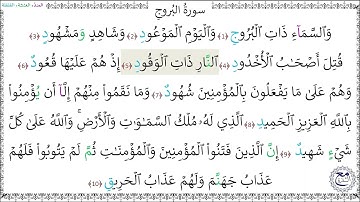 المد، الغنة، القلقلة
سورة البروج
وَٱلسَّمَآءِ ذَاتِ ٱلْبُرُوجِ (1) وَٱلْيَوْمِ ٱلْمَوْعُودِ (2) وَشَاهِدٍ وَمَشْهُودٍ (3)
قُتِلَ أَصْحَٰبُ ٱلْأُخْدُودِ (4) ٱلنَّارِ ذَاتِ ٱلْوَقُودِ (5) إِذْ هُمْ عَلَيْهَا قُعُودٌ (6)
وَهُمْ عَلَىٰ مَا يَفْعَلُونَ بِٱلْمُؤْمِنِينَ شُهُودٌ (7) وَمَا نَقَمُوا۟ مِنْهُمْ إِلَّآ أَن يُؤْمِنُوا۟
بِٱللَّهِ ٱلْعَزِيزِ ٱلْحَمِيدِ (8) ٱلَّذِي لَهُۥ مُلْكُ ٱلسَّمَٰوَٰتِ وَٱلْأَرْضِ وَٱللَّهُ عَلَىٰ كُلِّ
شَيْءٍ شَهِيدٌ (9) إِنَّ ٱلَّذِينَ فَتَنُوا۟ ٱلْمُؤْمِنِينَ وَٱلْمُؤْمِنَٰتِ ثُمَّ لَمْ يَتُوبُوا۟ فَلَهُمْ
عَذَابُ جَهَنَّمَ وَلَهُمْ عَذَابُ ٱلْحَرِيقِ (10)